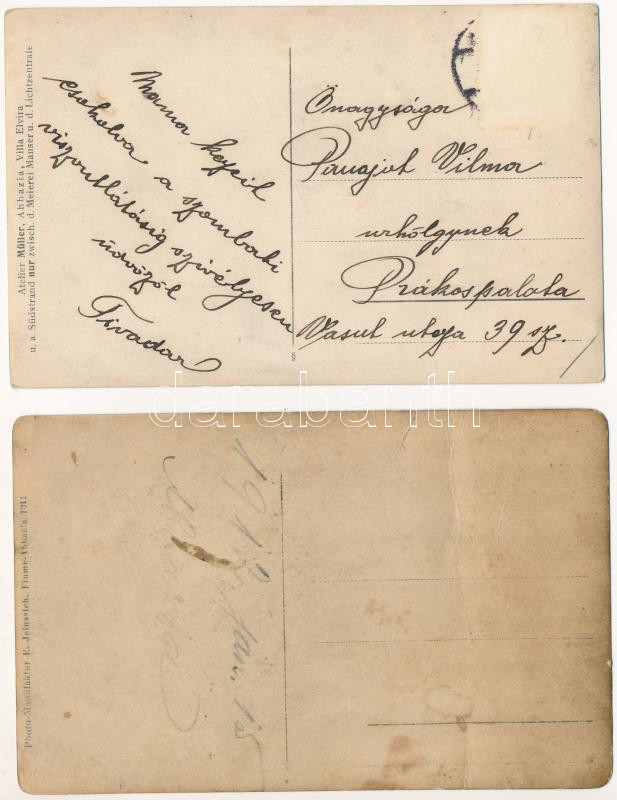 Atelier Müller, Abbazia, Villa Elvira
u. a. Südstrand nur zwisch. d. Meierei Manser u. d. Lichtzentrale
Mama kezeit
csokolva a szombati
viszontlátásig szivélyesen
üdvözöl
Tivadar
Önagysága
Panajot Vilma
urhölgynek
Rákospalota
Vasut utcza 39 sz.
darabanth
Photo-Manufaktur E. Jelussich, Fiume-Abbazia 1911
1912 jan. 15